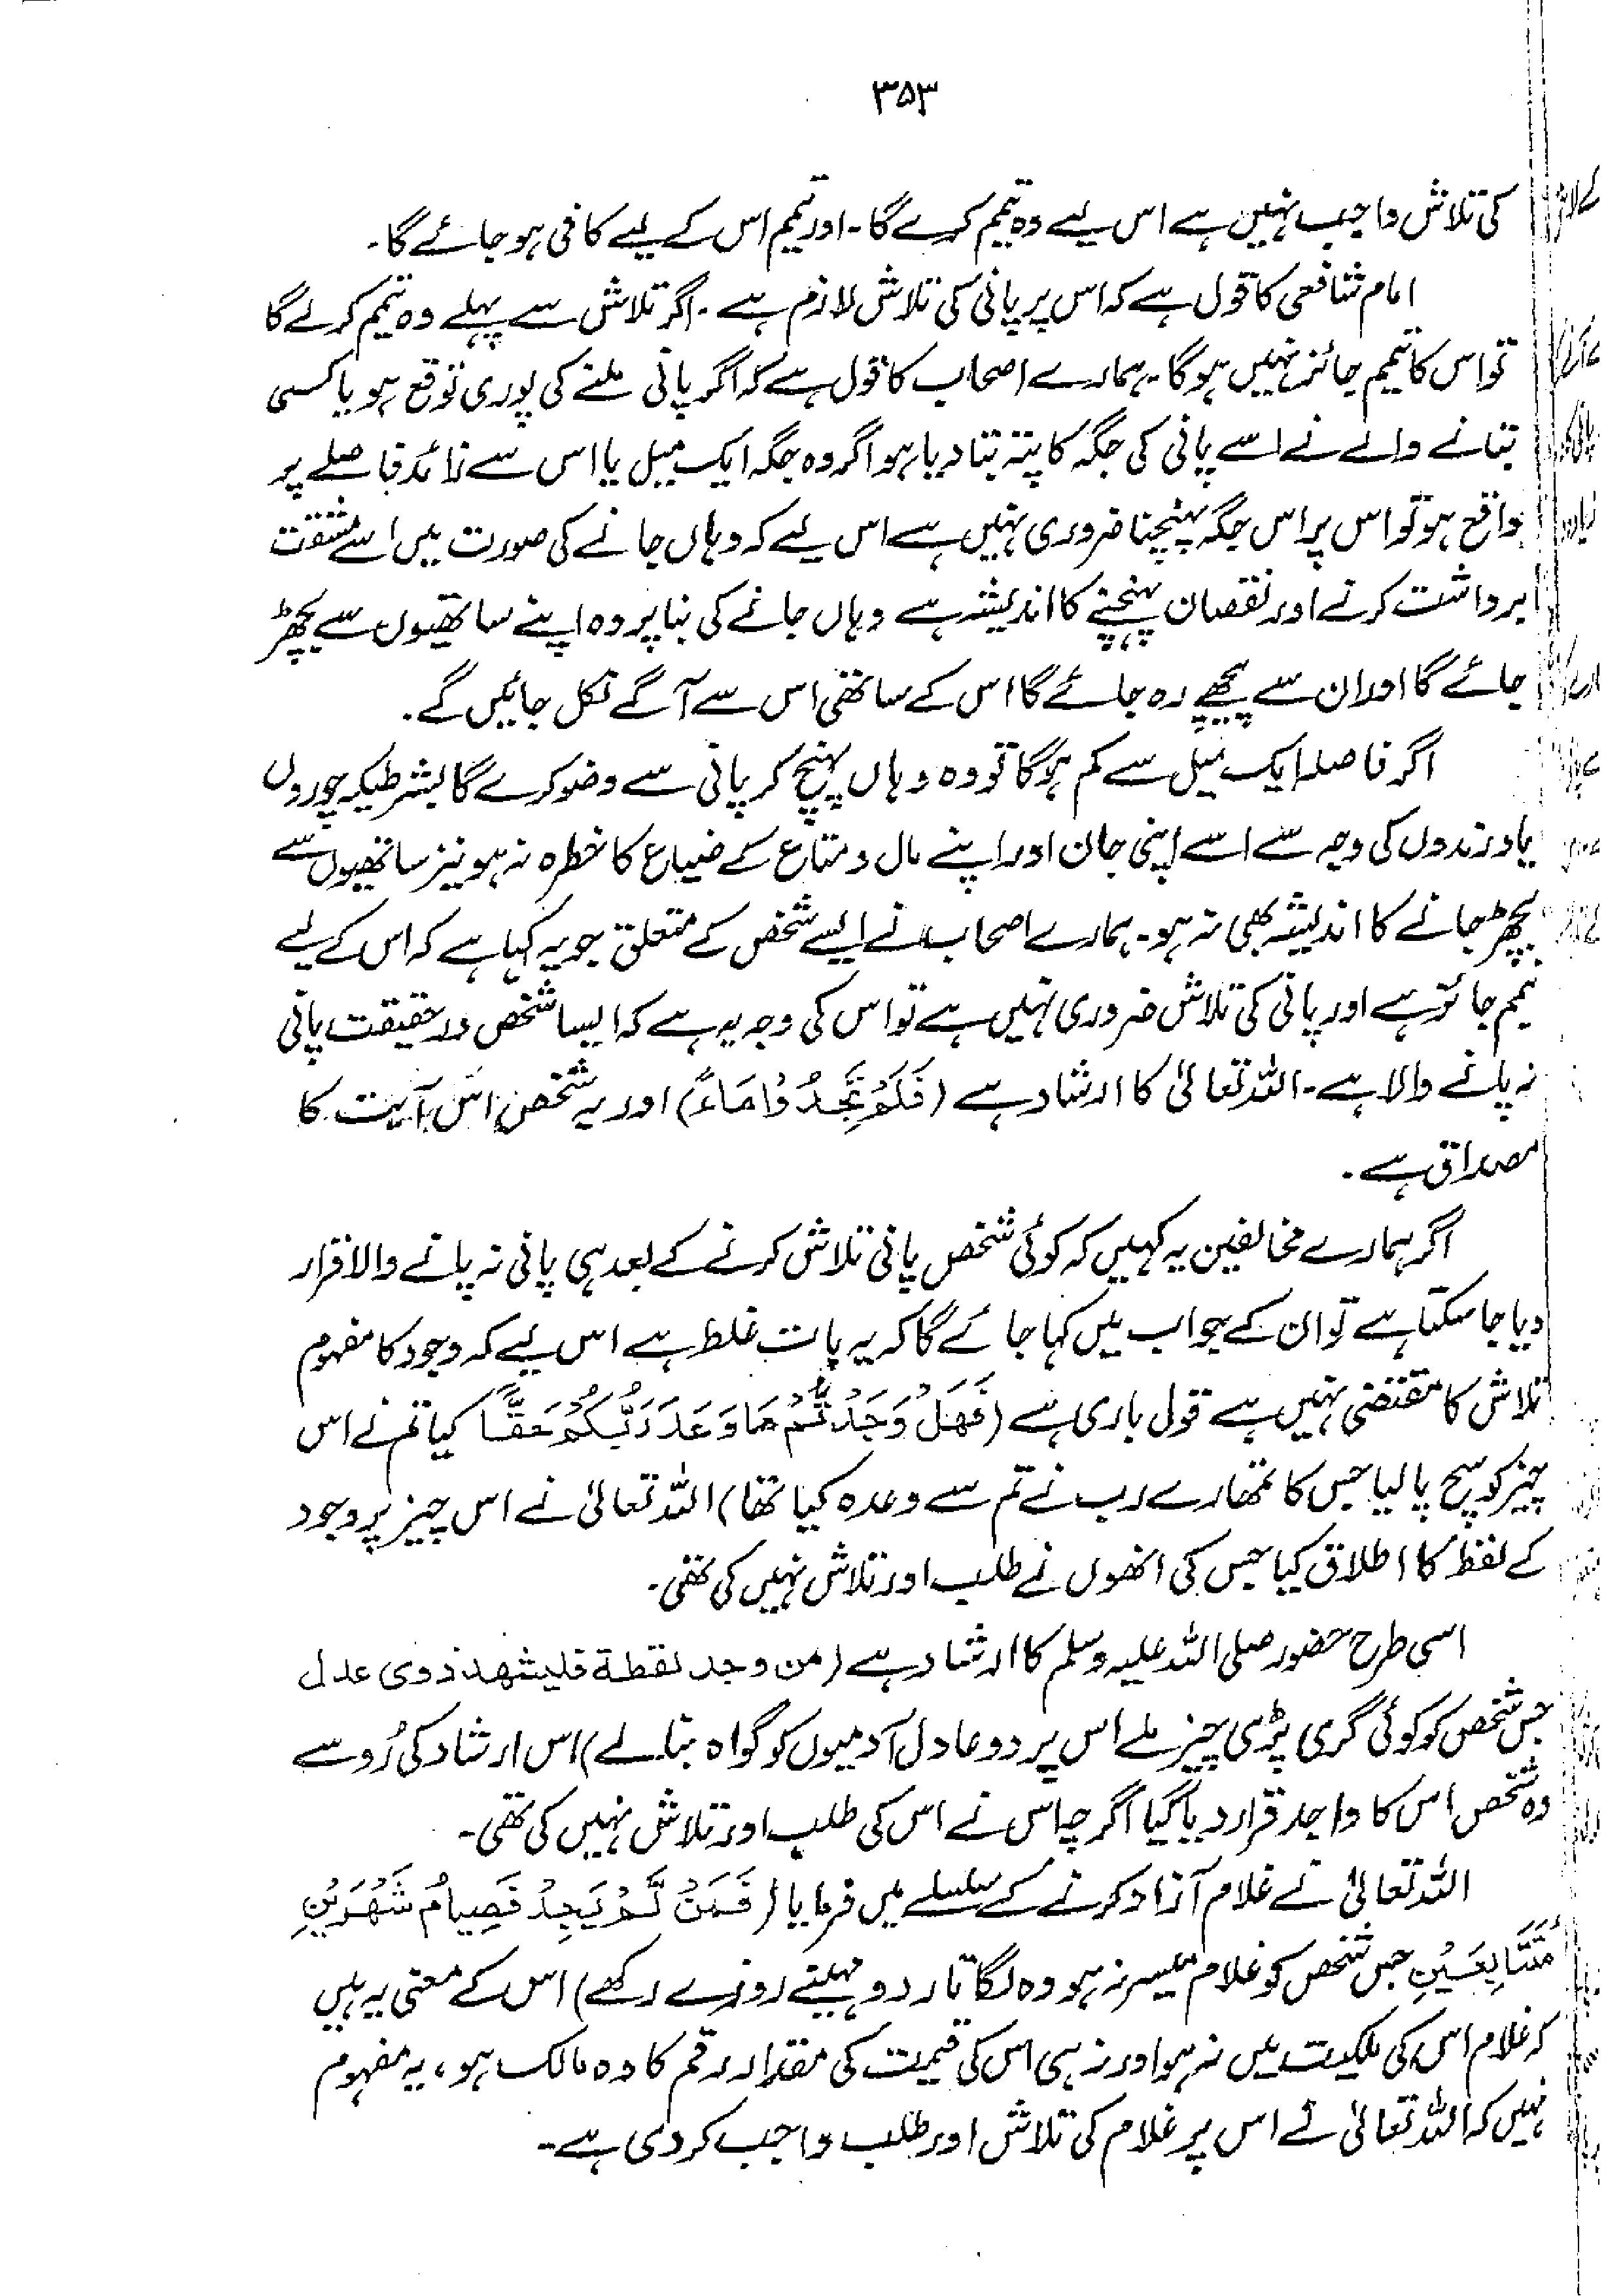 ۳۵۳
کی تلاش واجب نہیں ہے اس لیے وہ تیمم کرے گا۔ اور تیمم اس کے لیے کافی ہو جائے گا۔
امام شافعی کا قول ہے کہ اس پر پانی کی تلاش لازم ہے۔ اگر تلاش سے پہلے وہ تیمم کرلے گا
تو اس کا تیمم جائز نہیں ہوگا۔ ہمارے اصحاب کا قول ہے کہ اگر پانی ملنے کی پوری توقع ہو یا کسی
بتانے والے نے اسے پانی کی جگہ کا پتہ بتا دیا ہو اگر وہ جگہ ایک میل یا اس سے زائد فاصلے پر
واقع ہو تو اس پر اس جگہ پہنچنا ضروری نہیں ہے اس لیے کہ وہاں جانے کی صورت میں اسے مشقت
برداشت کرنے اور نقصان پہنچنے کا اندیشہ ہے وہاں جانے کی بنا پر وہ اپنے ساتھیوں سے بچھڑ
جائے گا اور ان سے پیچھے رہ جائے گا اس کے ساتھی اس سے آگے نکل جائیں گے۔
اگر فاصلہ ایک میل سے کم ہوگا تو وہ وہاں پہنچ کر پانی سے وضو کرے گا بشرطیکہ چوروں
یا درندوں کی وجہ سے اسے اپنی جان اور اپنے مال و متاع کے ضیاع کا خطرہ نہ ہو نیز ساتھیوں سے
بچھڑ جانے کا اندیشہ بھی نہ ہو۔ ہمارے اصحاب نے ایسے شخص کے متعلق جو یہ کہا ہے کہ اس کے لیے
تیمم جائز ہے اور پانی کی تلاش ضروری نہیں ہے تو اس کی وجہ یہ ہے کہ ایسا شخص در حقیقت پانی
نہ پانے والا ہے۔ اللہ تعالیٰ کا ارشاد ہے (فَلَمْ تَجِدُوْا مَاءً) اور یہ شخص اس آیت کا
مصداق ہے۔
اگر ہمارے مخالفین یہ کہیں کہ کوئی شخص پانی تلاش کرنے کے بعد ہی پانی نہ پانے والا قرار
دیا جا سکتا ہے تو ان کے جواب میں کہا جائے گا کہ یہ بات غلط ہے اس لیے کہ وجود کا مفہوم
تلاش کا مقتضی نہیں ہے قول باری ہے (فَهَلْ وَجَدْتُّمْ مَا وَعَدَ رَبُّكُمْ حَقًّا کیا تم نے اس
چیز کو سچ پا لیا جس کا تمھارے رب نے تم سے وعدہ کیا تھا) اللہ تعالیٰ نے اس چیز پر وجود
کے لفظ کا اطلاق کیا جس کی انھوں نے طلب اور تلاش نہیں کی تھی۔
اسی طرح حضور صلی اللہ علیہ وسلم کا ارشاد ہے (من وجد لقطة فليشهد ذوى عدل
جس شخص کو کوئی گری پڑی چیز ملے اس پر دو عادل آدمیوں کو گواہ بنا لے) اس ارشاد کی رُو سے
وہ شخص اس کا واجد قرار دیا گیا اگرچہ اس نے اس کی طلب اور تلاش نہیں کی تھی۔
اللہ تعالیٰ نے غلام آزاد کرنے کے سلسلے میں فرمایا (فَمَنْ لَّمْ يَجِدْ فَصِيامُ شَهْرَيْنِ
مُتَتَابِعَيْنِ جس شخص کو غلام میسر نہ ہو وہ لگاتار دو مہینے روزے رکھے) اس کے معنی یہ ہیں
کہ غلام اس کی ملکیت میں نہ ہو اور نہ ہی اس کی قیمت کی مقدار رقم کا وہ مالک ہو، یہ مفہوم
نہیں کہ اللہ تعالیٰ نے اس پر غلام کی تلاش اور طلب واجب کر دی ہے۔